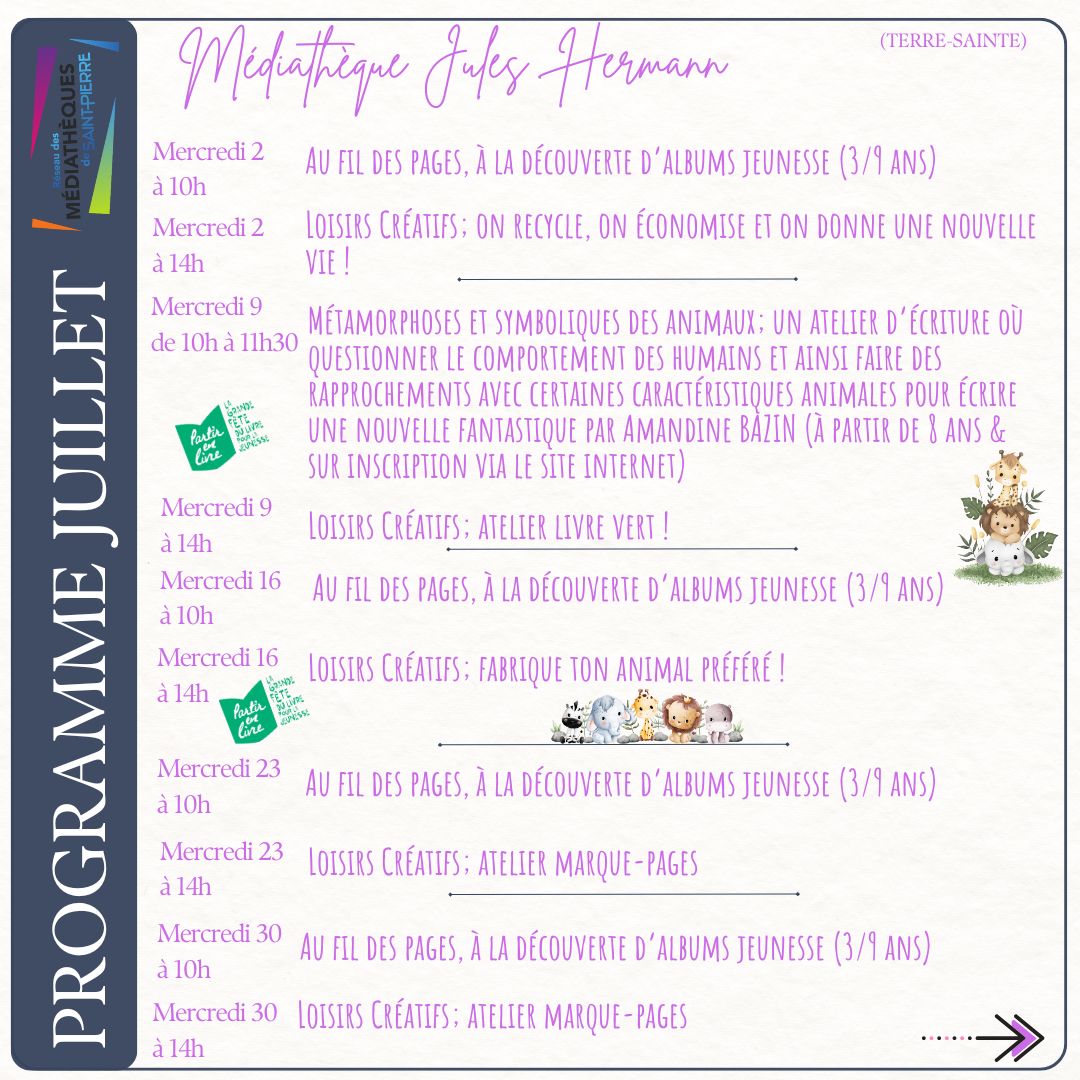 Réseau des
MÉDIATHÈQUES
de SAINT-PIERRE
PROGRAMME JUILLET
Médiathèque Jules Hermann
(TERRE-SAINTE)
Mercredi 2
à 10h
Au fil des pages, à la découverte d'albums jeunesse (3/9 ans)
Mercredi 2
à 14h
Loisirs Créatifs; on recycle, on économise et on donne une nouvelle
vie !
Mercredi 9
de 10h à 11h30
Métamorphoses et symboliques des animaux; un atelier d'écriture où
questionner le comportement des humains et ainsi faire des
rapprochements avec certaines caractéristiques animales pour écrire
une nouvelle fantastique par Amandine BAZIN (à partir de 8 ans &
sur inscription via le site internet)
Partir
en
Livre
LA
GRANDE
FÊTE
DU LIVRE
POUR LA
JEUNESSE
Mercredi 9
à 14h
Loisirs Créatifs; atelier livre vert !
Mercredi 16
à 10h
Au fil des pages, à la découverte d'albums jeunesse (3/9 ans)
Mercredi 16
à 14h
Loisirs Créatifs; fabrique ton animal préféré !
Partir
en
Livre
LA
GRANDE
FÊTE
DU LIVRE
POUR LA
JEUNESSE
Mercredi 23
à 10h
Au fil des pages, à la découverte d'albums jeunesse (3/9 ans)
Mercredi 23
à 14h
Loisirs Créatifs; atelier marque-pages
Mercredi 30
à 10h
Au fil des pages, à la découverte d'albums jeunesse (3/9 ans)
Mercredi 30
à 14h
Loisirs Créatifs; atelier marque-pages